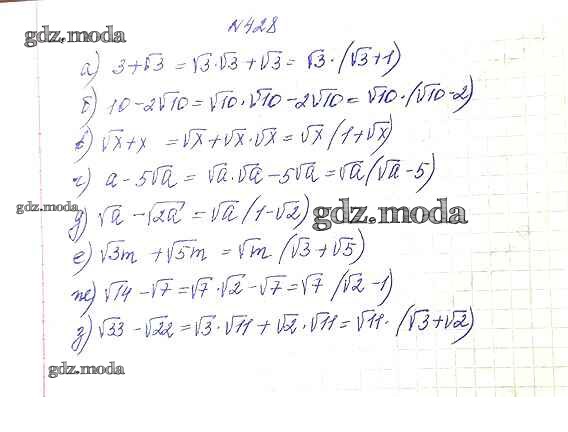 №428
gdz.moda
а) 3+√3 = √3·√3+√3 = √3·(√3+1)
б) 10-2√10=√10·√10-2√10=√10·(√10-2)
в) √x+x = √x+√x·√x=√x(1+√x)
г) a-5√a = √a·√a-5√a=√a(√a-5)
gdz.moda
д) √a-√2a =√a(1-√2)
gdz.moda
е) √3m+√5m = √m(√3+√5)
ж) √14-√7=√7·√2-√7=√7(√2-1)
з) √33-√22=√3·√11+√2·√11=√11·(√3+√2)
gdz.moda